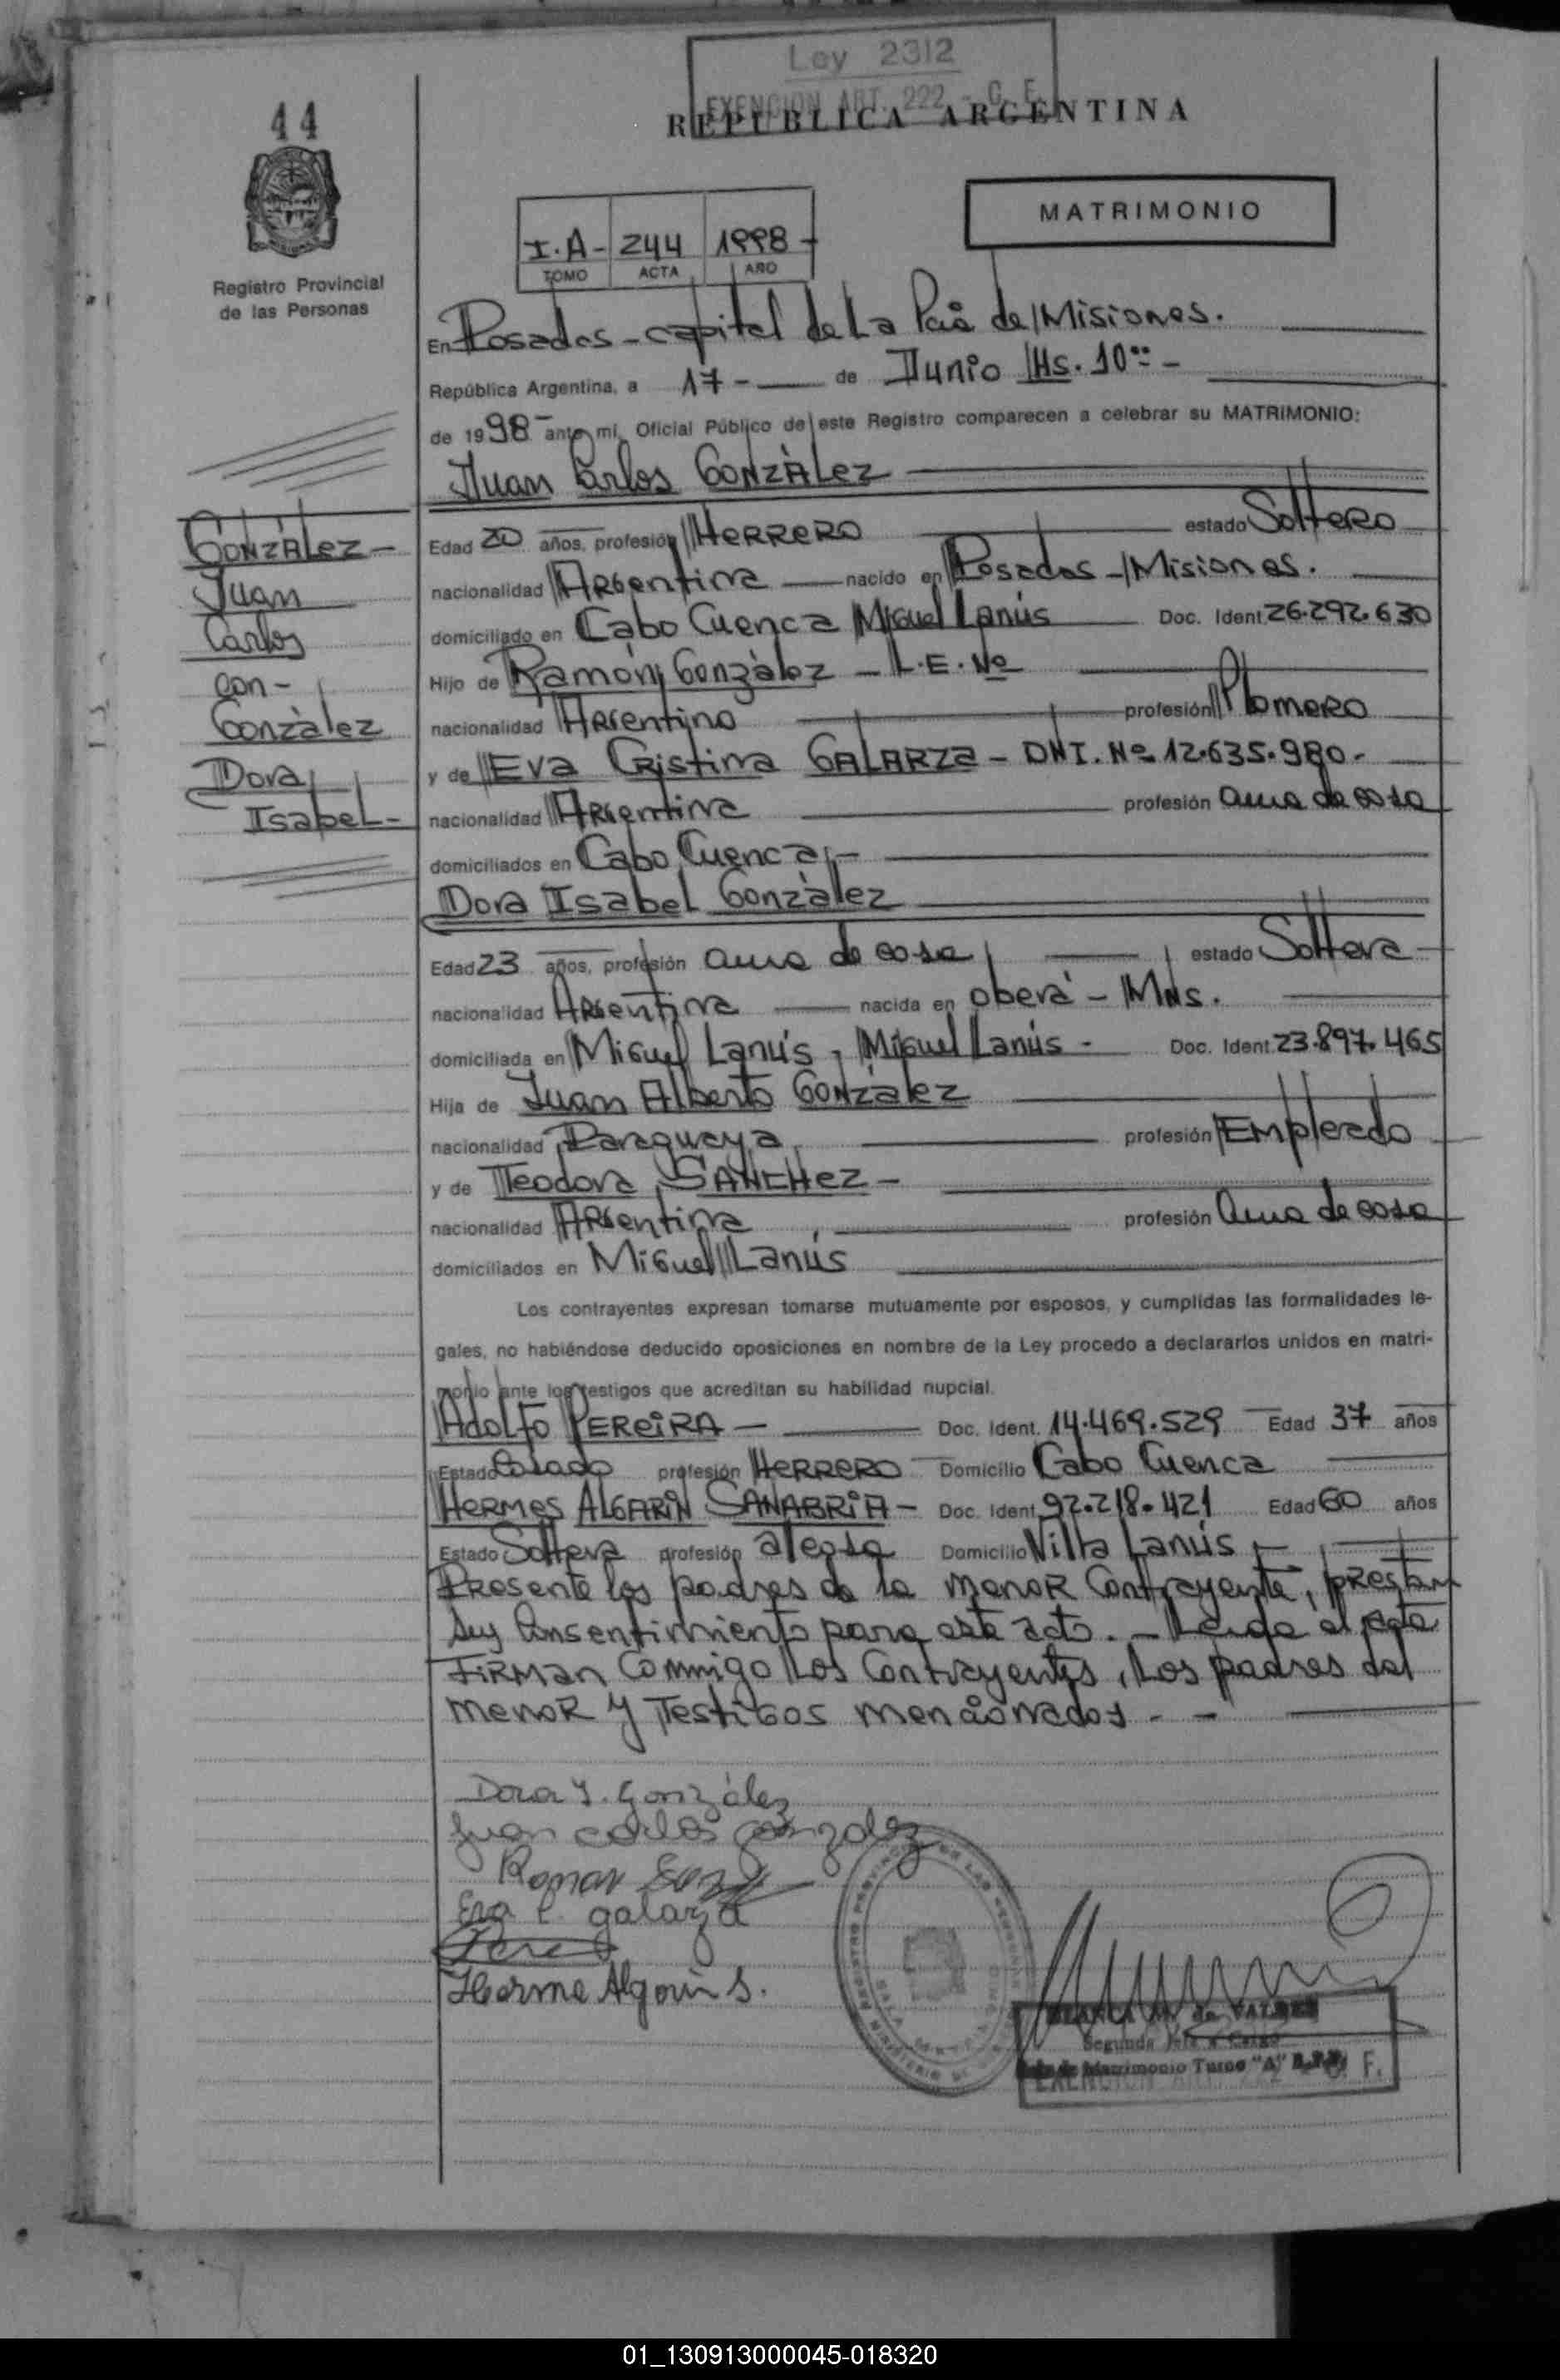 Ley 2312
EXENCION ART. 222 - C. F.
44
REPUBLICA ARGENTINA
MATRIMONIO
I.A- 244 1998-
TOMO ACTA AÑO
Registro Provincial
de las Personas
En Posadas-capital de La Pcia de Misiones.
República Argentina, a 17- de Junio Hs. 10:-
de 1998 ante mí, Oficial Público de este Registro comparecen a celebrar su MATRIMONIO:
Juan Carlos GONZÀLez
GONZÀLez-
Juan
Carlos
con-
Gonzàlez
Dora
Isabel-
Edad 20 años, profesión HERRERO estado Soltero
nacionalidad Argentina nacido en Posadas-Misiones.
domiciliado en Cabo Cuenca Miguel Lanús Doc. Ident 26.292.630
Hijo de Ramón Gonzàlez - L.E. Nº
nacionalidad Argentino profesión Plomero
y de Eva Cristina GALARZa - DNI. Nº 12.635.980.-
nacionalidad Argentina profesión ama de casa
domiciliados en Cabo Cuenca,-
Dora Isabel Gonzàlez
Edad 23 años, profesión ama de casa estado Soltera
nacionalidad Argentina nacida en oberá - Mns.
domiciliada en Miguel Lanús, Miguel Lanús - Doc. Ident. 23.897.465
Hija de Juan Alberto GONZalez
nacionalidad Paraguaya profesión Empleado
y de Teodora SANCHez-
nacionalidad Argentina profesión ama de casa
domiciliados en Miguel Lanús
Los contrayentes expresan tomarse mutuamente por esposos, y cumplidas las formalidades le-
gales, no habiéndose deducido oposiciones en nombre de la Ley procedo a declararlos unidos en matri-
monio ante los testigos que acreditan su habilidad nupcial.
Adolfo PEREiRA- Doc. Ident. 14.469.529 Edad 37 años
Estado Casado profesión HERRERO Domicilio Cabo Cuenca
HERMES ALGARiN SANABRiA- Doc. Ident. 92.218.421 Edad 60 años
Estado Soltera profesión Domicilio Villa Lanús
Presente los padres de la menor Contrayente, prestan
su Consentimiento para este acto.- Leida el acta
FiRMan Conmigo Los Contrayentes, Los padres del
menor y Testigos mencionados.- -
Dora I. González
Juan carlos gonzalez
Ramon
Eva C. galarza
Herme Algarin S.
BLANCA de VALDES
Segunda Jefa a Cargo
Matrimonio Turno "A"
01_130913000045-018320